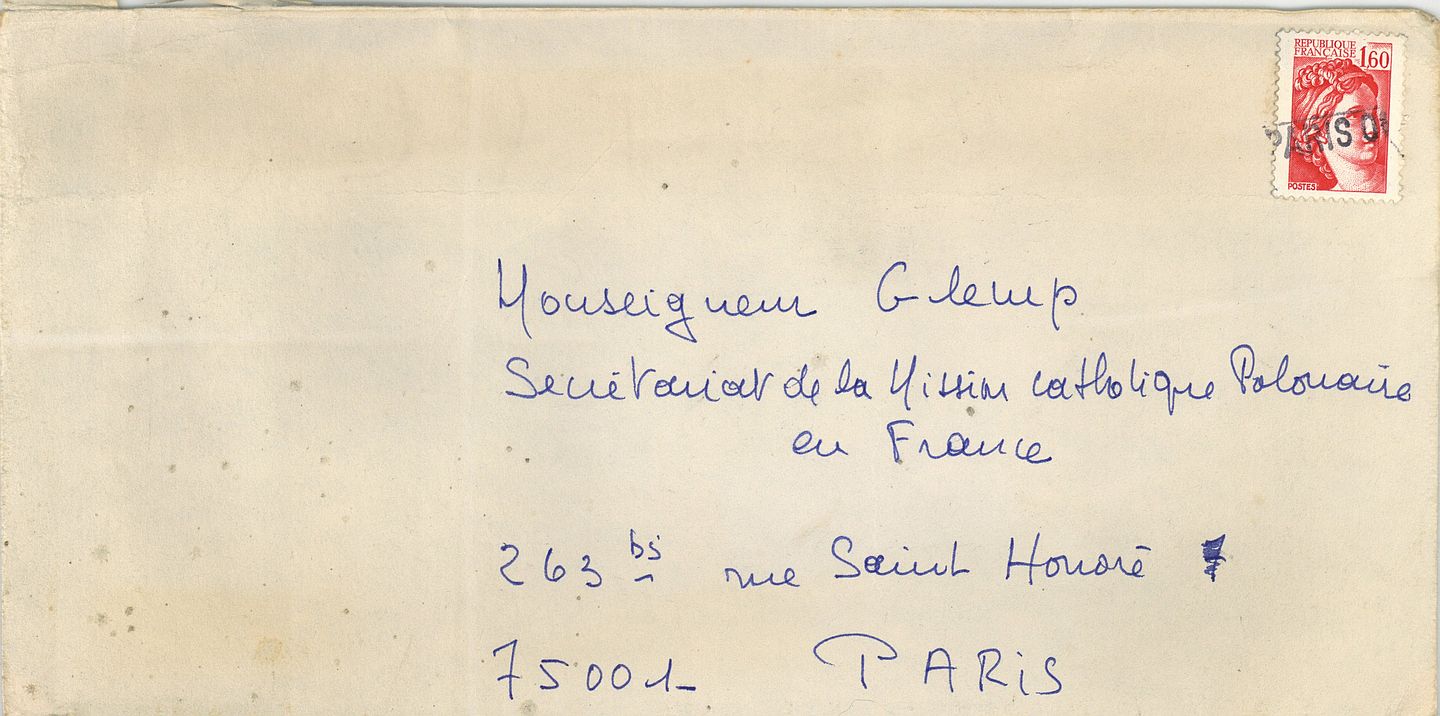 REPUBLIQUE
FRANCAISE 1,60
PARIS
POSTES
Monseigneur Glemp
Secrétariat de la Mission catholique Polonaise
en France
263 bis rue Saint Honoré
75001 PARIS